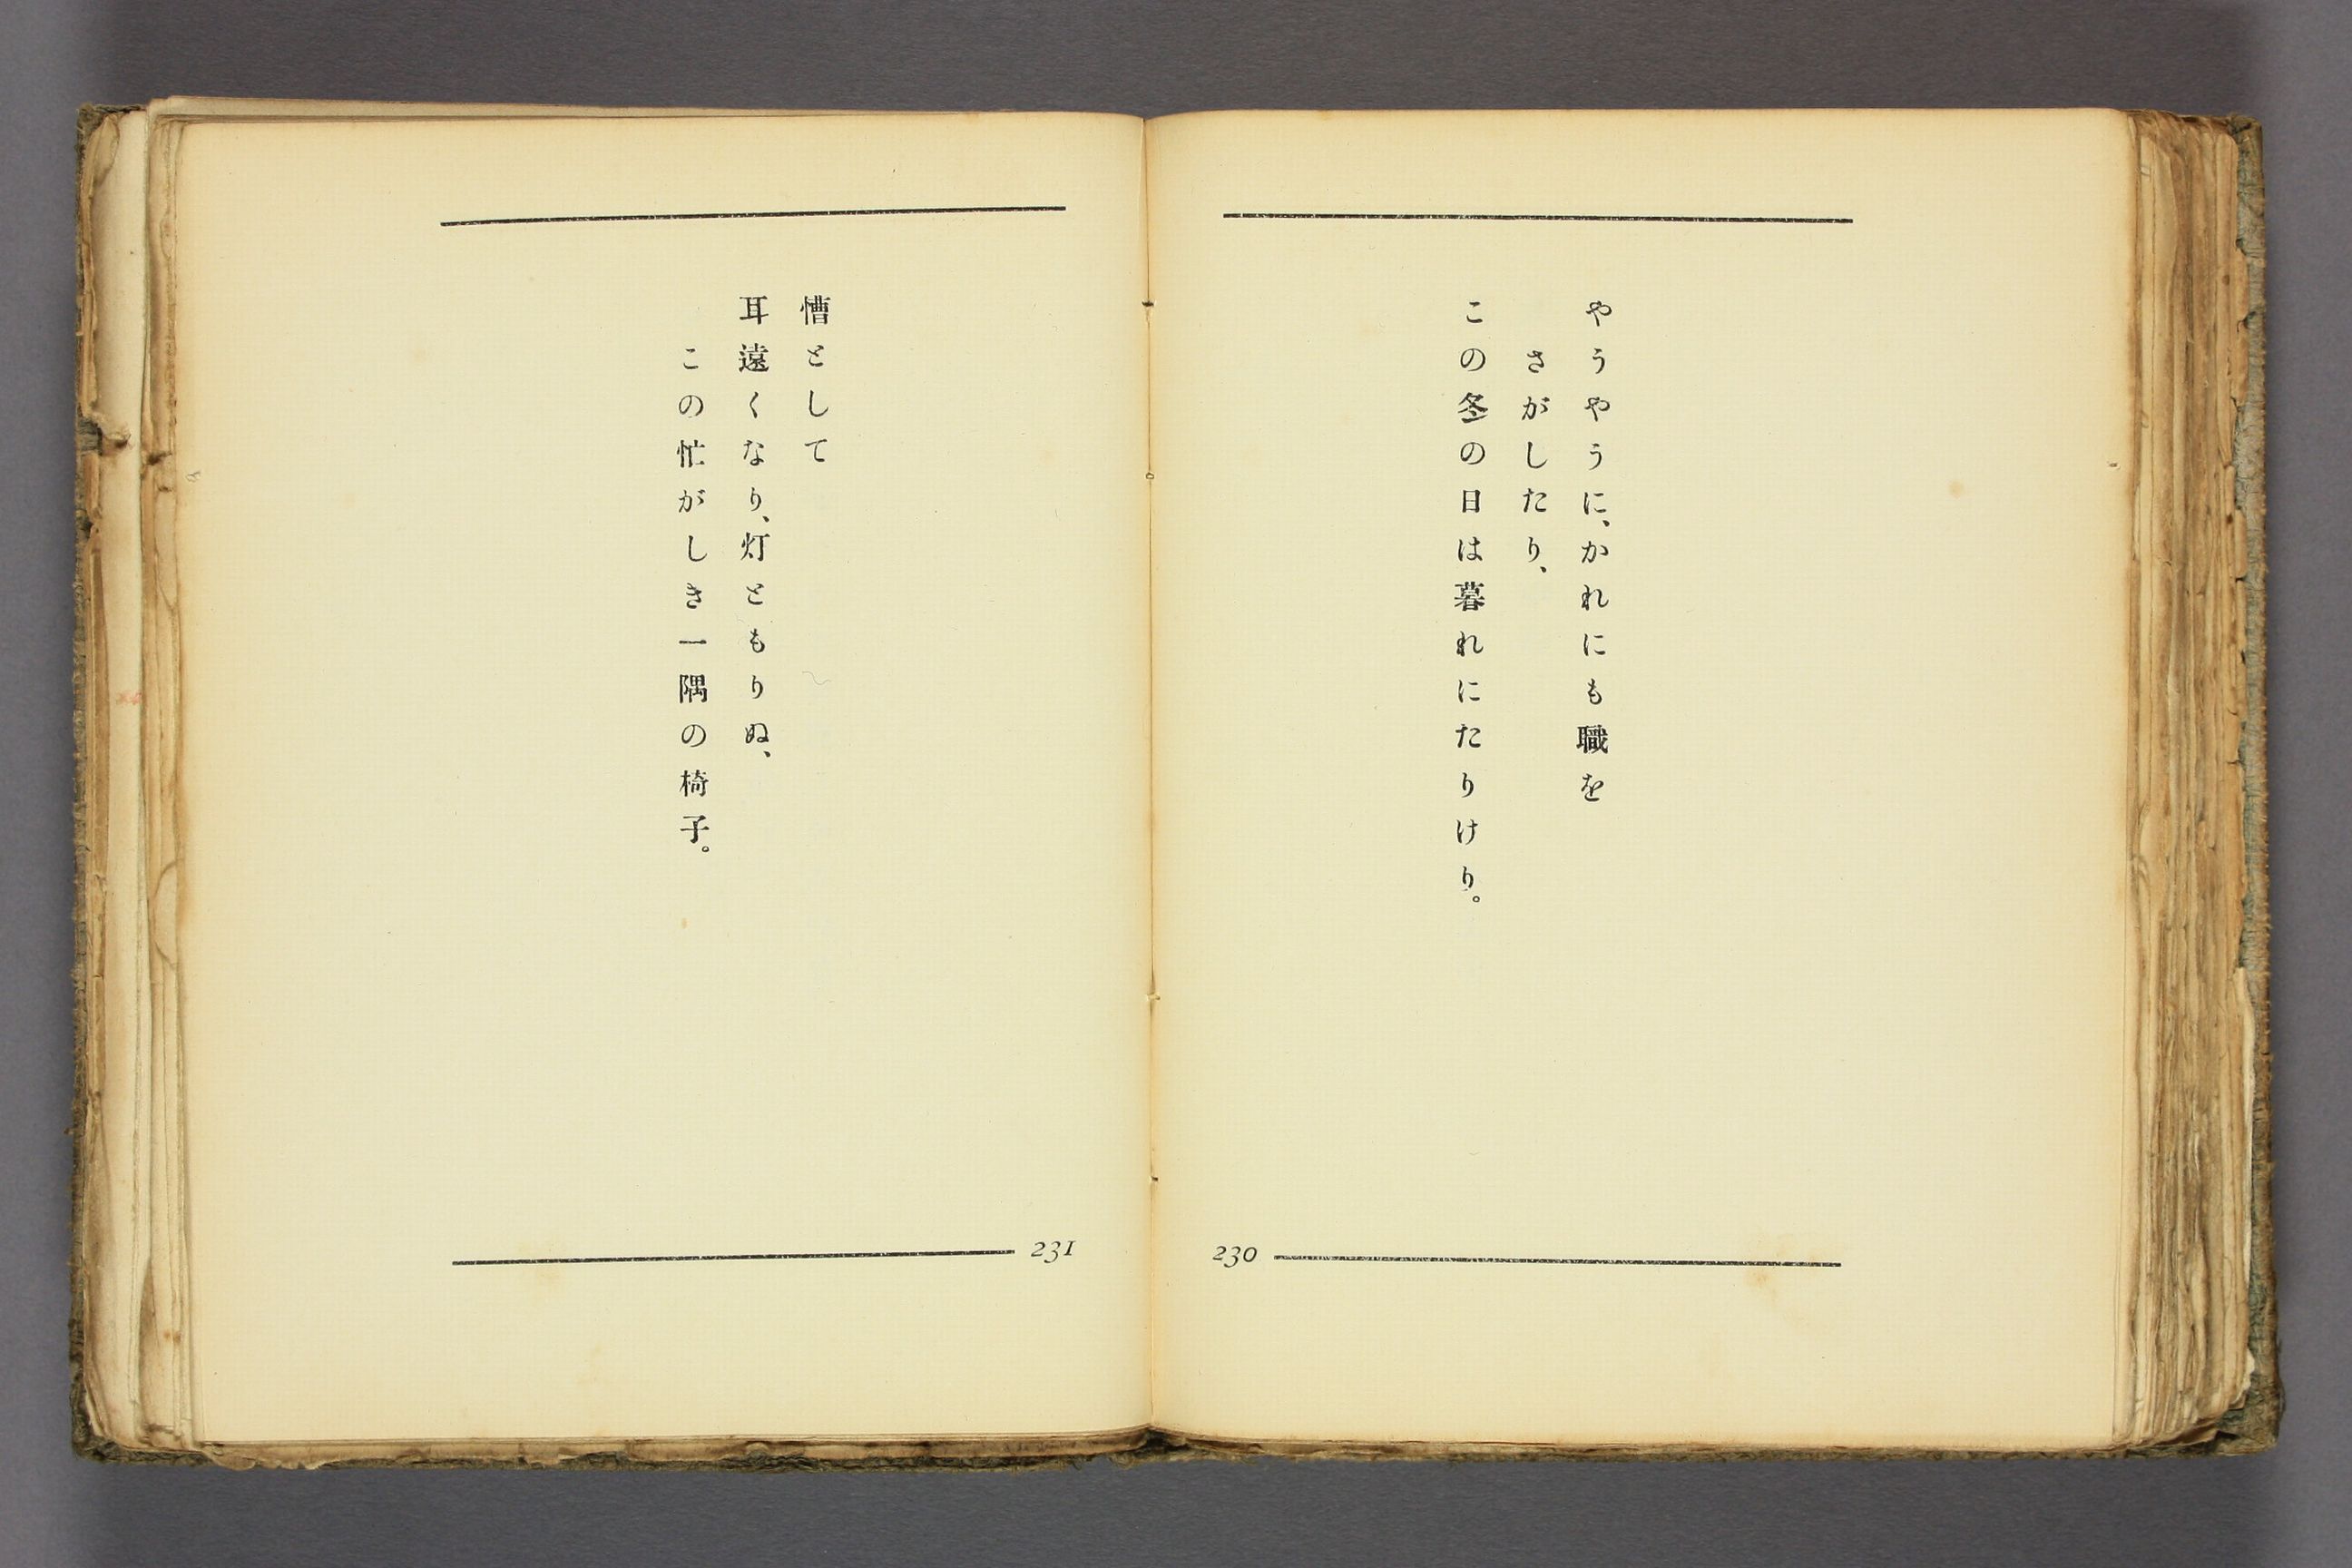 やうやうに、かれにも職を
さがしたり、
この冬の日は暮れにたりけり。
230
慒として
耳遠くなり、灯ともりぬ、
この忙がしき一隅の椅子。
231